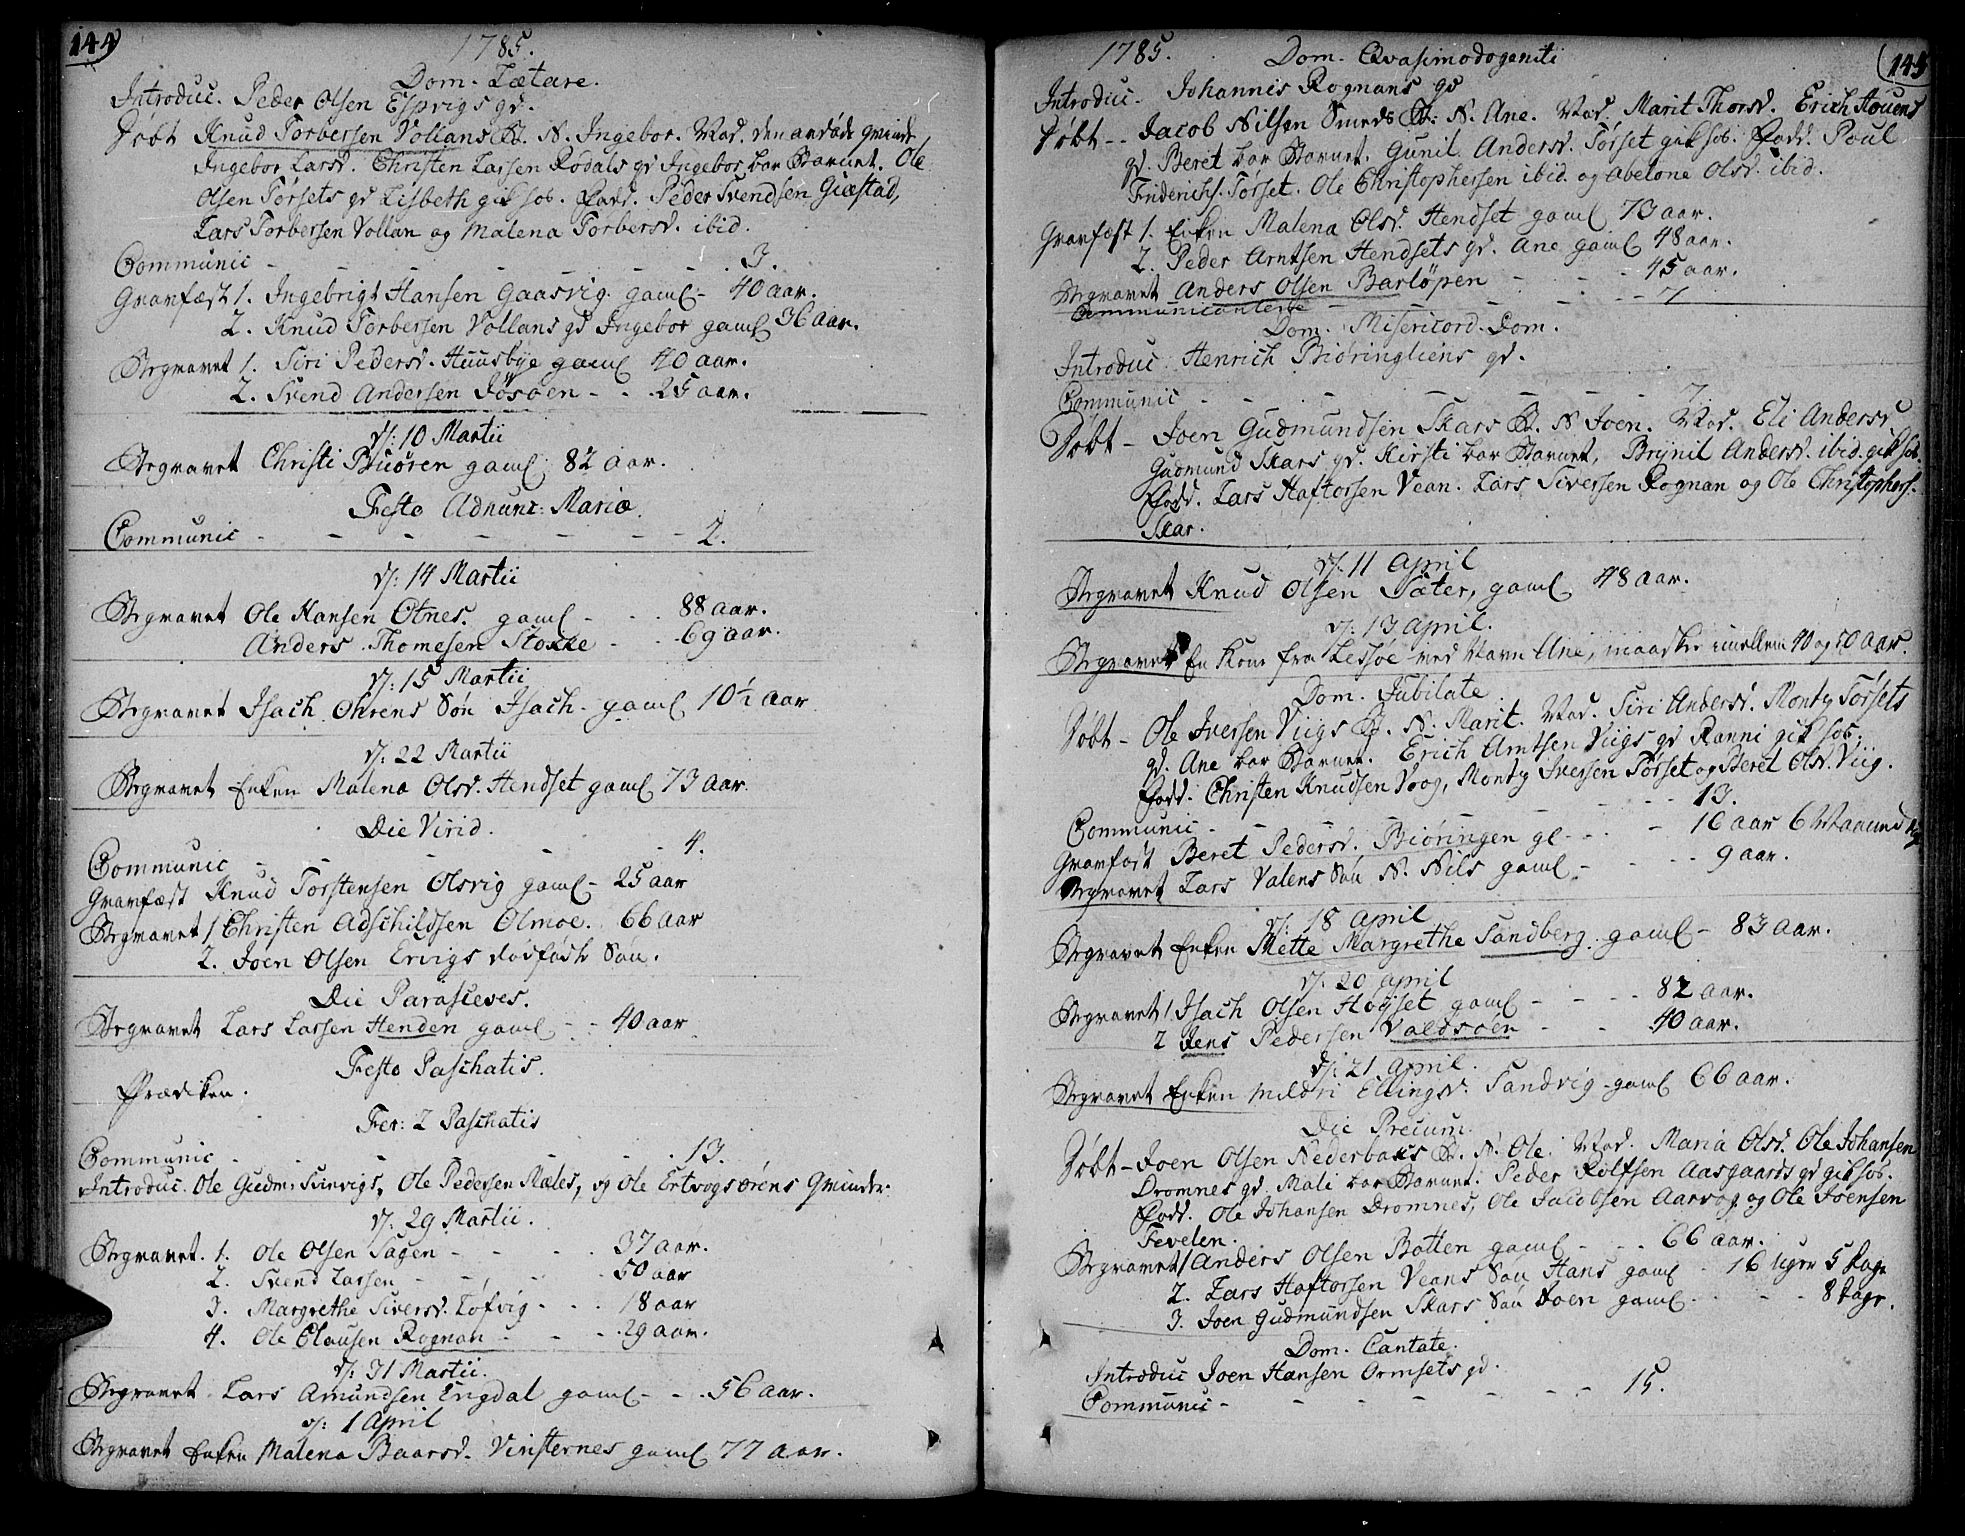 144
1785.
Dom. Lætare.
Introduc. Peder Olsen Espvigs qd.
Døbt Knud Torbersen Vollans B. N. Ingebor. Mod. den anden qvinde
Ingebor Larsd. Christen Larsen Rodals qd Ingebor bar Barnet. Ole
Olsen Torsets qd Lisbeth gik hos. Fadd. Peder Svendsen Giæstad,
Lars Torbersen Vollan og Malena Torbersd. ibid.
Communic - - - - - - 3.
Gravfæst 1. Ingebrigt Hansen Gaasvig. gaml - 40 aar.
2. Knud Torbersen Vollans qd Ingebor gaml 36 aar.
Begravet 1. Siri Pedersd. Huusbye gaml 40 aar.
2. Svend Andersen Jösöen - - 25 aar.
d: 10 Martii
Begravet Christi Buören gaml 82 aar.
Festo Adnunc: Mariæ
Communic - - - - - - 2.
d: 14 Martii
Begravet Ole Hansen Otnes. gaml - - 88 aar.
Anders Thomesen Stokke - - 69 aar.
d: 15 Martii
Begravet Isach Ohrens Søn Isach - gaml 10½ aar
d: 22 Martii
Begravet Enken Malena Olsd. Hendset gaml 73 aar
Die Virid.
Communic - - - - 4.
Gravfæst Knud Torstensen Olsvig gaml - 25 aar
Begravet 1 Christen Adschildsen Olmoe. 66 aar
2. Joen Olsen Ervigs dødfødte Søn.
Die Parasceves.
Begravet Lars Larsen Henden gaml - - 40 aar
Festo Paschatis.
Prædiken.
Fer: 2 Paschatis
Communic - - - - - 13.
Introduc. Ole Gudm: Svinvigs, Ole Pedersen Næles, og Ole Ertvogsörens Qvinder.
d. 29 Martii.
Begravet. 1. Ole Olsen Sagen - - - 37 aar.
2. Svend Larsen - - - 50 aar
3. Margrethe Siversd. Töfvig - - 18 aar
4. Ole Clausen Rognan - - - 29 aar.
d: 31 Martii.
Begravet Lars Amundsen Engdal gaml - - 56 aar.
d: 1 April
Begravet Enken Malena Baarsd. Vinsternes gaml 77 aar.
145
1785. Dom. Qvasimodogeniti
Introduc. Johannis Rognans qd
Døbt - - Jacob Nilsen Smeds B: N. Ane. Mod. Marit Thorsd. Erich Houens
qd. Beret bar Barnet. Gunil Andersd. Törset gik hos. Fadd. Poul
Friderichs. Törset. Ole Christophersen ibid. og Abelone Olsd. ibid.
Gravfæst 1. Enken Malena Olsd. Hendset gaml 73 aar.
2. Peder Arntsen Hendsets qd. Ane gaml 48 aar.
Begravet Anders Olsen Barlöpen - - - 45 aar.
Communicantere - - - - - 7
Dom. Misericord. Dom.
Introduc Henrich Biöringliens qd.
Communic - - - - - - 7.
Døbt - Joen Gudmundsen Skars B. N Joen. Mod. Eli Andersd
Gudmund Skars qd. Kirsti bar Barnet, Brynil Andersd. ibid. gik hos.
Fadd. Lars Haftorsen Vean. Lars Siversen Rognan og Ole Christophers.
Skar.
d. 11 April
Begravet Knud Olsen Sæter, gaml 48 aar.
d: 13 April.
Begravet En Kone fra Lessöe ved Navn Ane, maaskee imellem 40 og 50 Aar.
Dom. Jubilate.
Døbt - Ole Iversen Viigs B. N. Marit. Mod. Siri Andersd. Monty Törsets
qd. Ane bar Barnet. Erich Arntsen Viigs qd Ranni gik hos.
Fadd. Christen Knudsen Voog, Monty Iversen Törset og Beret Olsd. Viig.
Communic - - - - - - 13.
Gravfæst Beret Pedersd. Biöringen gl - - - 16 aar 6 Maaneder
Begravet Lars Valens Søn N. Nils gaml - - - 9 aar.
d: 18 April
Begravet Enken Mette Margrethe Sandberg. gaml - 83 aar.
d. 20 April
Begravet 1 Isach Olsen Höyset gaml - - - 82 aar.
2 Jens Pedersen Valdsöen - - 40 aar.
d: 21 April.
Begravet Enken Mildri Ellingsd. Sandvig - gaml 66 aar.
Die Precum.
Døbt - Joen Olsen Nederbaks B. N. Ole. Mod. Maria Olsd. Ole Johansen
Dromnes qd Mali bar Barnet. Peder Rolfsen Aasgaards qd gik hos.
Fadd. Ole Johansen Dromnes, Ole Jacobsen Aarvog og Ole Joensen
Fevelen.
Begravet 1 Anders Olsen Botten gaml - - - 66 aar.
2. Lars Haftorsen Veans Søn Hans gaml - 16 uger 5 Dage
3. Joen Gudmundsen Skars Søn Joen gaml - - - 8 Dage.
Dom. Cantate.
Introduc Joen Hansen Ormsets qd.
Communic - - - - - - 15.